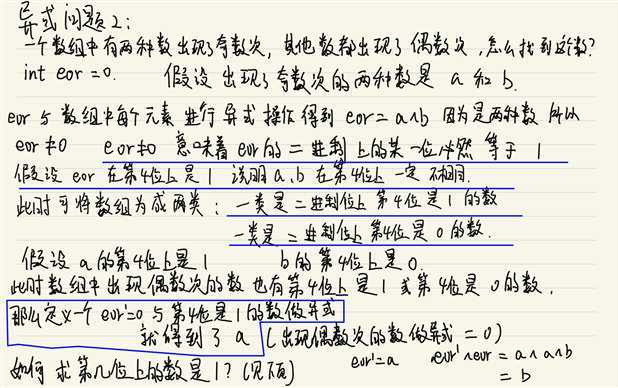 异或问题2:
一个数组中有两种数出现了奇数次，其他数都出现了偶数次，怎么找到这数?
int eor =0. 假设出现了奇数次的两种数是 a 和 b.
eor 与 数组中每个元素 进行 异或 操作 得到 eor = a^b 因为是两种数 所以
eor≠0 eor≠0 意味着 eor的 二进制 上的某一位必然 等于 1
假设 eor 在第4位上是 1 说明 a、b 在第4位上 一定 不相同.
此时可将数组分成两类: 一类是二进制位上 第4位是1的数
一类是二进制位上 第4位是0的数.
假设 a的第4位上是1 b的第4位上是0.
此时数组中出现偶数次的数也有第4位上是1或第4位是0的数.
那么定义一个 eor'=0 与第4位是1的数做异或
就得到了 a (出现偶数次的数做异或 = 0)
如何求第几位上的数是1? (见下面) eor'=a eor'^eor = a^a^b
= b